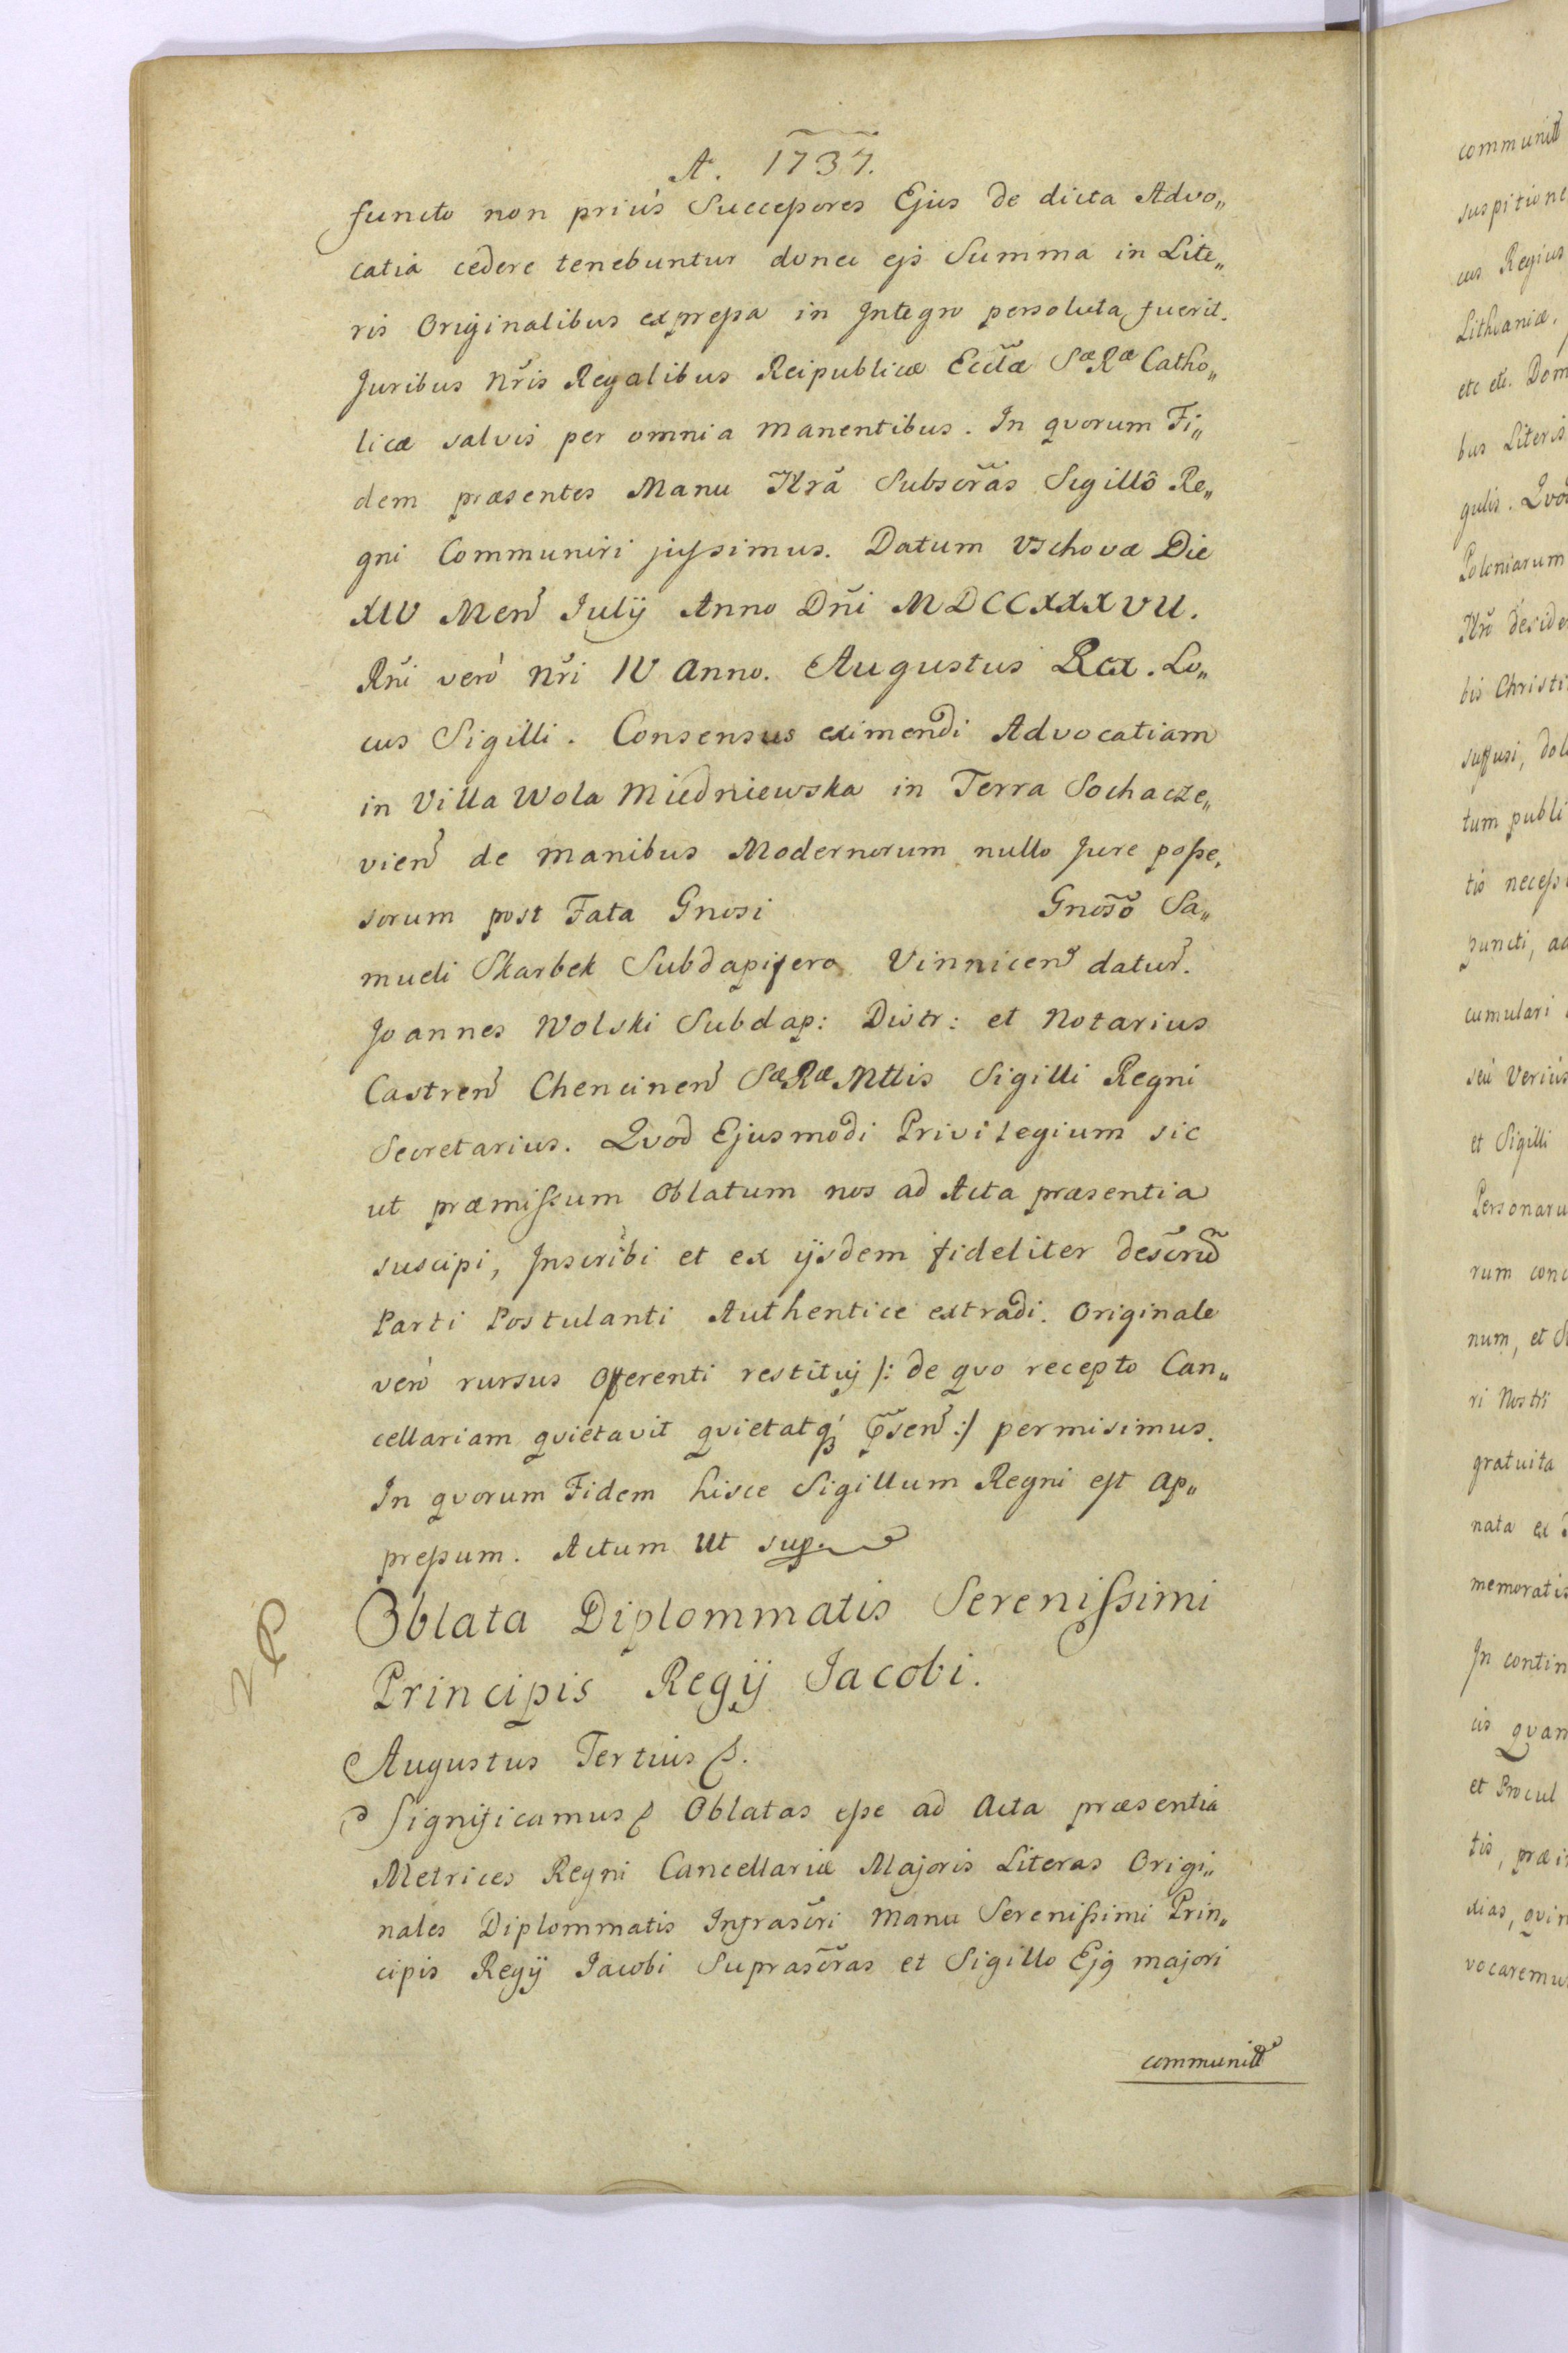 A. 1737.
functo non priùs Successores Ejus de dicta Advo„
catia cedere tenebuntur donec ejs Summa in Lite„
ris Originalibus expressa in Integro persoluta fuerit.
Juribus nr̃is Regalibus Reipublicæ Eccl̃æ SæRæ Catho„
licæ salvis per omnia manentibus. In qvorum Fi„
dem præsentes Manu Nr̃a Subscr̃as Sigillô Re„
gni Communiri jussimus. Datum Vschovæ Die
XIV Men̉ Julij Anno Dñi MDCCXXXVII.
Rñi verò nr̃i IV Anno. Augustus Rex. Lo„
cus Sigilli. Consensus eximendi Advocatiam
in Villa Wola Miedniewska in Terra Sochacze„
vien̉ de manibus Modernorum nullo Jure posse„
sorum post Fata Gnosi Gnos̃o Sa„
mueli Skarbek Subdapifero Vinnicen̉ datur̉.
Joannes Wolski Subdap: Distr: et Notarius
Castren̉ Chencinen̉ SæRæ Mttis Sigilli Regni
Secretarius. Qvod Ejusmodi Privilegium sic
ut præmissum Oblatum nos ad Acta præsentia
suscipi, Inscribi et ex ijsdem fideliter descr̃ũ
Parti Postulanti Authentice extradi. Originale
verò rursus Offerenti restituj /: de qvo recepto Can„
cellariam qvietavit qvietatq́ꝫ p̃sen̉ :/ permisimus.
In qvorum Fidem hisce Sigillum Regni est ap„
pressum. Actum Ut sup.
Oblata Diplommatis Serenissimi
Principis Regij Jacobi.
NP
Augustus Tertius ꝭ.
Significamus ꝭ Oblatas esse ad Acta præsentia
Metrices Regni Cancellariæ Majoris Literas Origi„
nales Diplommatis Infrascr̃i Manu Serenissimi Prin„
cipis Regij Jacobi Suprascr̃as et Sigillo Ejꝯ majori
communitt̉
communitt̉
suspitione
cus Regius
Lithvaniæ,
etc etc. Dom
bus Literis
gulis. Qvod
Poloniarum
Nr̃o deside
bis Christi
suffusi, dol
tum publi
tis necess
puncti, ad
cumulari
seù Verius
et Sigilli
Personaru
rum conc
num, et S
ri Nostri
gratuita
nata ex
memoratis
In contin
cis qvan
et Procul
tis, præi
dias, qvin
vocaremu